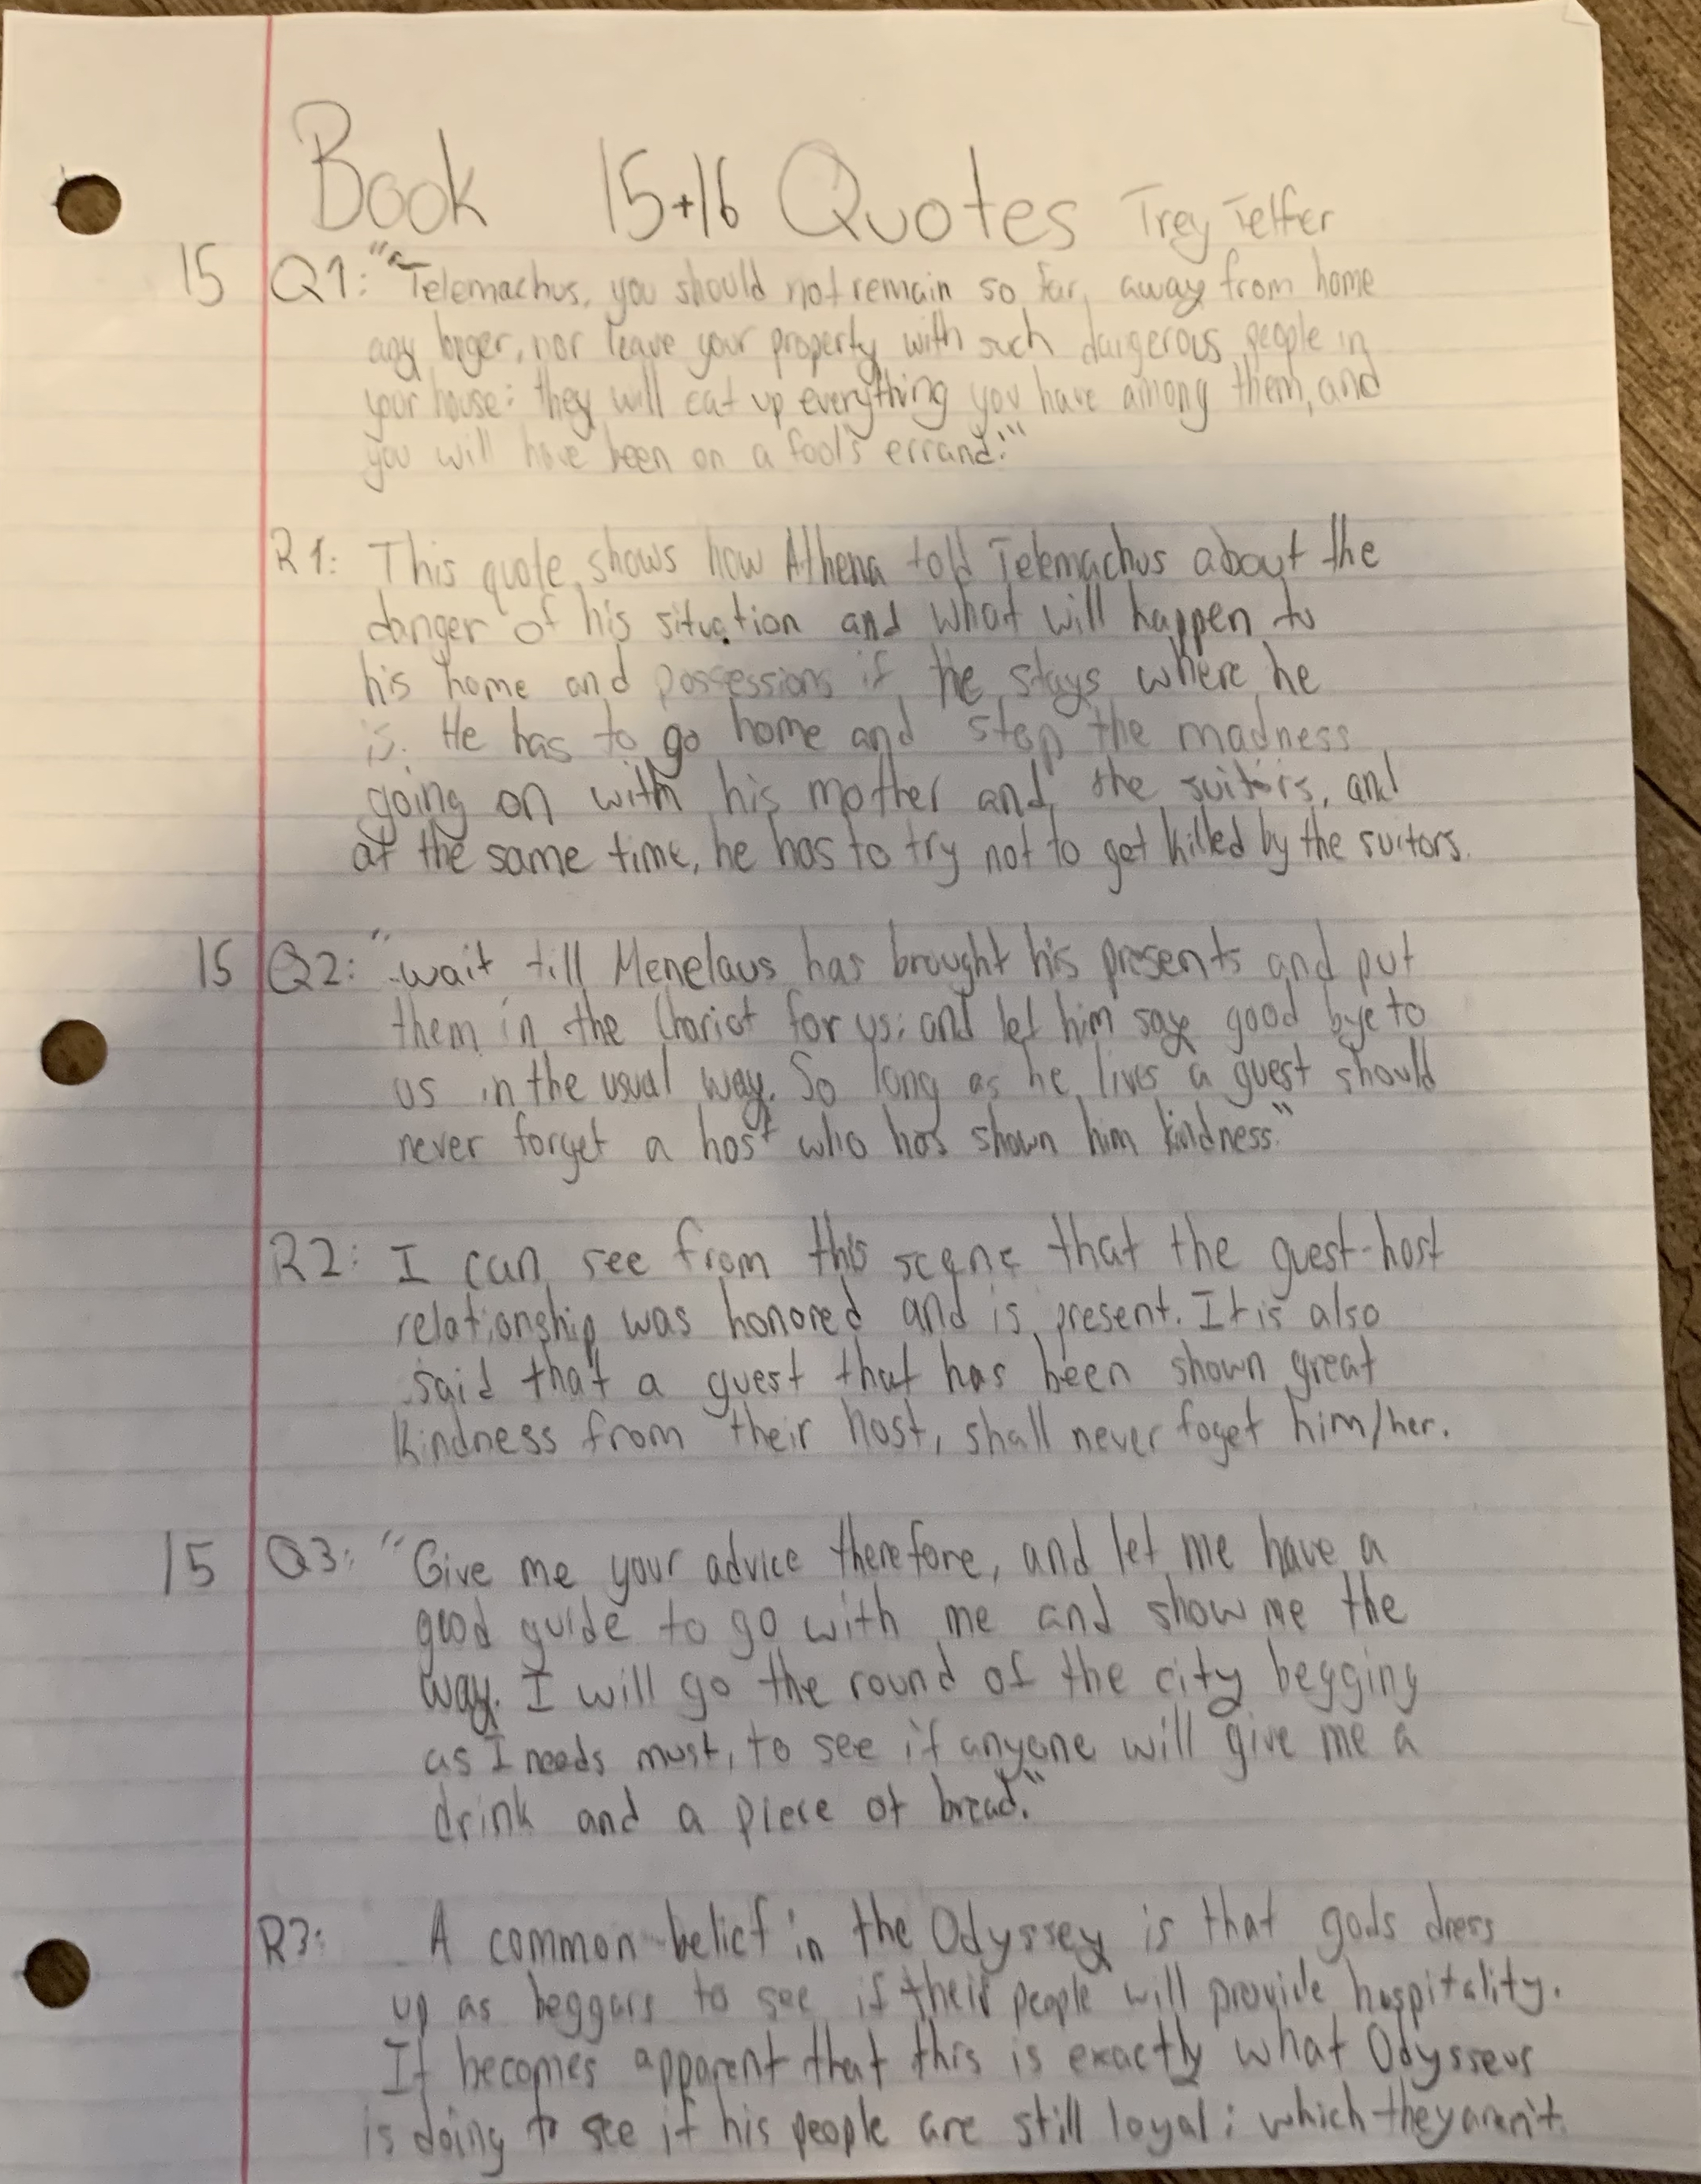 Book 15+16 Quotes Trey Telfer
15 Q1: "“Telemachus, you should not remain so far away from home
any longer, nor leave your property with such dangerous people in
your house: they will eat up everything you have among them, and
you will have been on a fool's errand.'"
R1: This quote shows how Athena told Telemachus about the
danger of his situation and what will happen to
his home and possessions if he stays where he
is. He has to go home and stop the madness
going on with his mother and the suitors, and
at the same time, he has to try not to get killed by the suitors.
15 Q2: "wait till Menelaus has brought his presents and put
them in the Chariot for us; and let him say good bye to
us in the usual way. So long as he lives a guest should
never forget a host who has shown him kindness."
R2: I can see from this scene that the guest-host
relationship was honored and is present. It is also
said that a guest that has been shown great
kindness from their host, shall never foget him/her.
15 Q3: "Give me your advice therefore, and let me have a
good guide to go with me and show me the
way. I will go the round of the city begging
as I needs must, to see if anyone will give me a
drink and a piece of bread."
R3: A common belief in the Odyssey is that gods dress
up as beggars to see if their people will provide hospitality.
It becomes apparent that this is exactly what Odysseus
is doing to see if his people are still loyal; which they aren't.